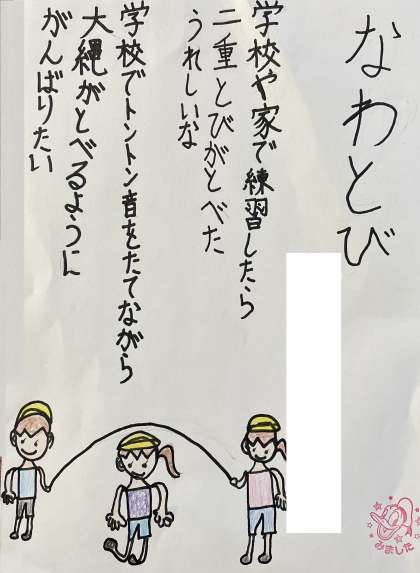 なわとび
学校や家で練習したら
二重とびがとべた
うれしいな
学校でトントン音をたてながら
大縄がとべるように
がんばりたい
みました